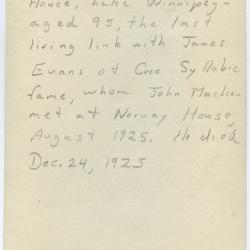 House, Lake Winnipeg -
aged 95, the last
living link with James
Evans of Cree Syllabic
fame, whom John Maclean
met at Norway House,
August 1925. He died
Dec. 24, 1925